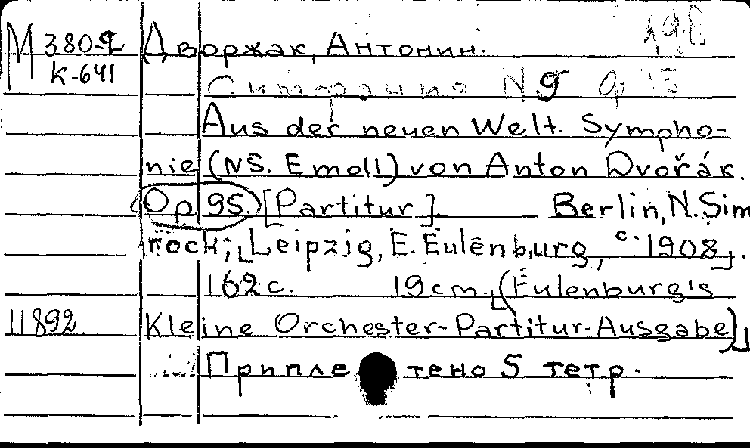 М 380-2 Дворжак, Антонин.
К-641
Симфония N 9 Op
Aus der neuen Welt. Sympho-
nie (N5. E moll) von Anton Dvořák.
Op 95. [Partitur]. Berlin, N. Sim
rock; Leipzig, E. Eulenburg, c. 1908.
162 с. 19 cm. (Eulenburg's
11892 Kleine Orchester-Partitur-Ausgabe)
Припле тено 5 тетр.